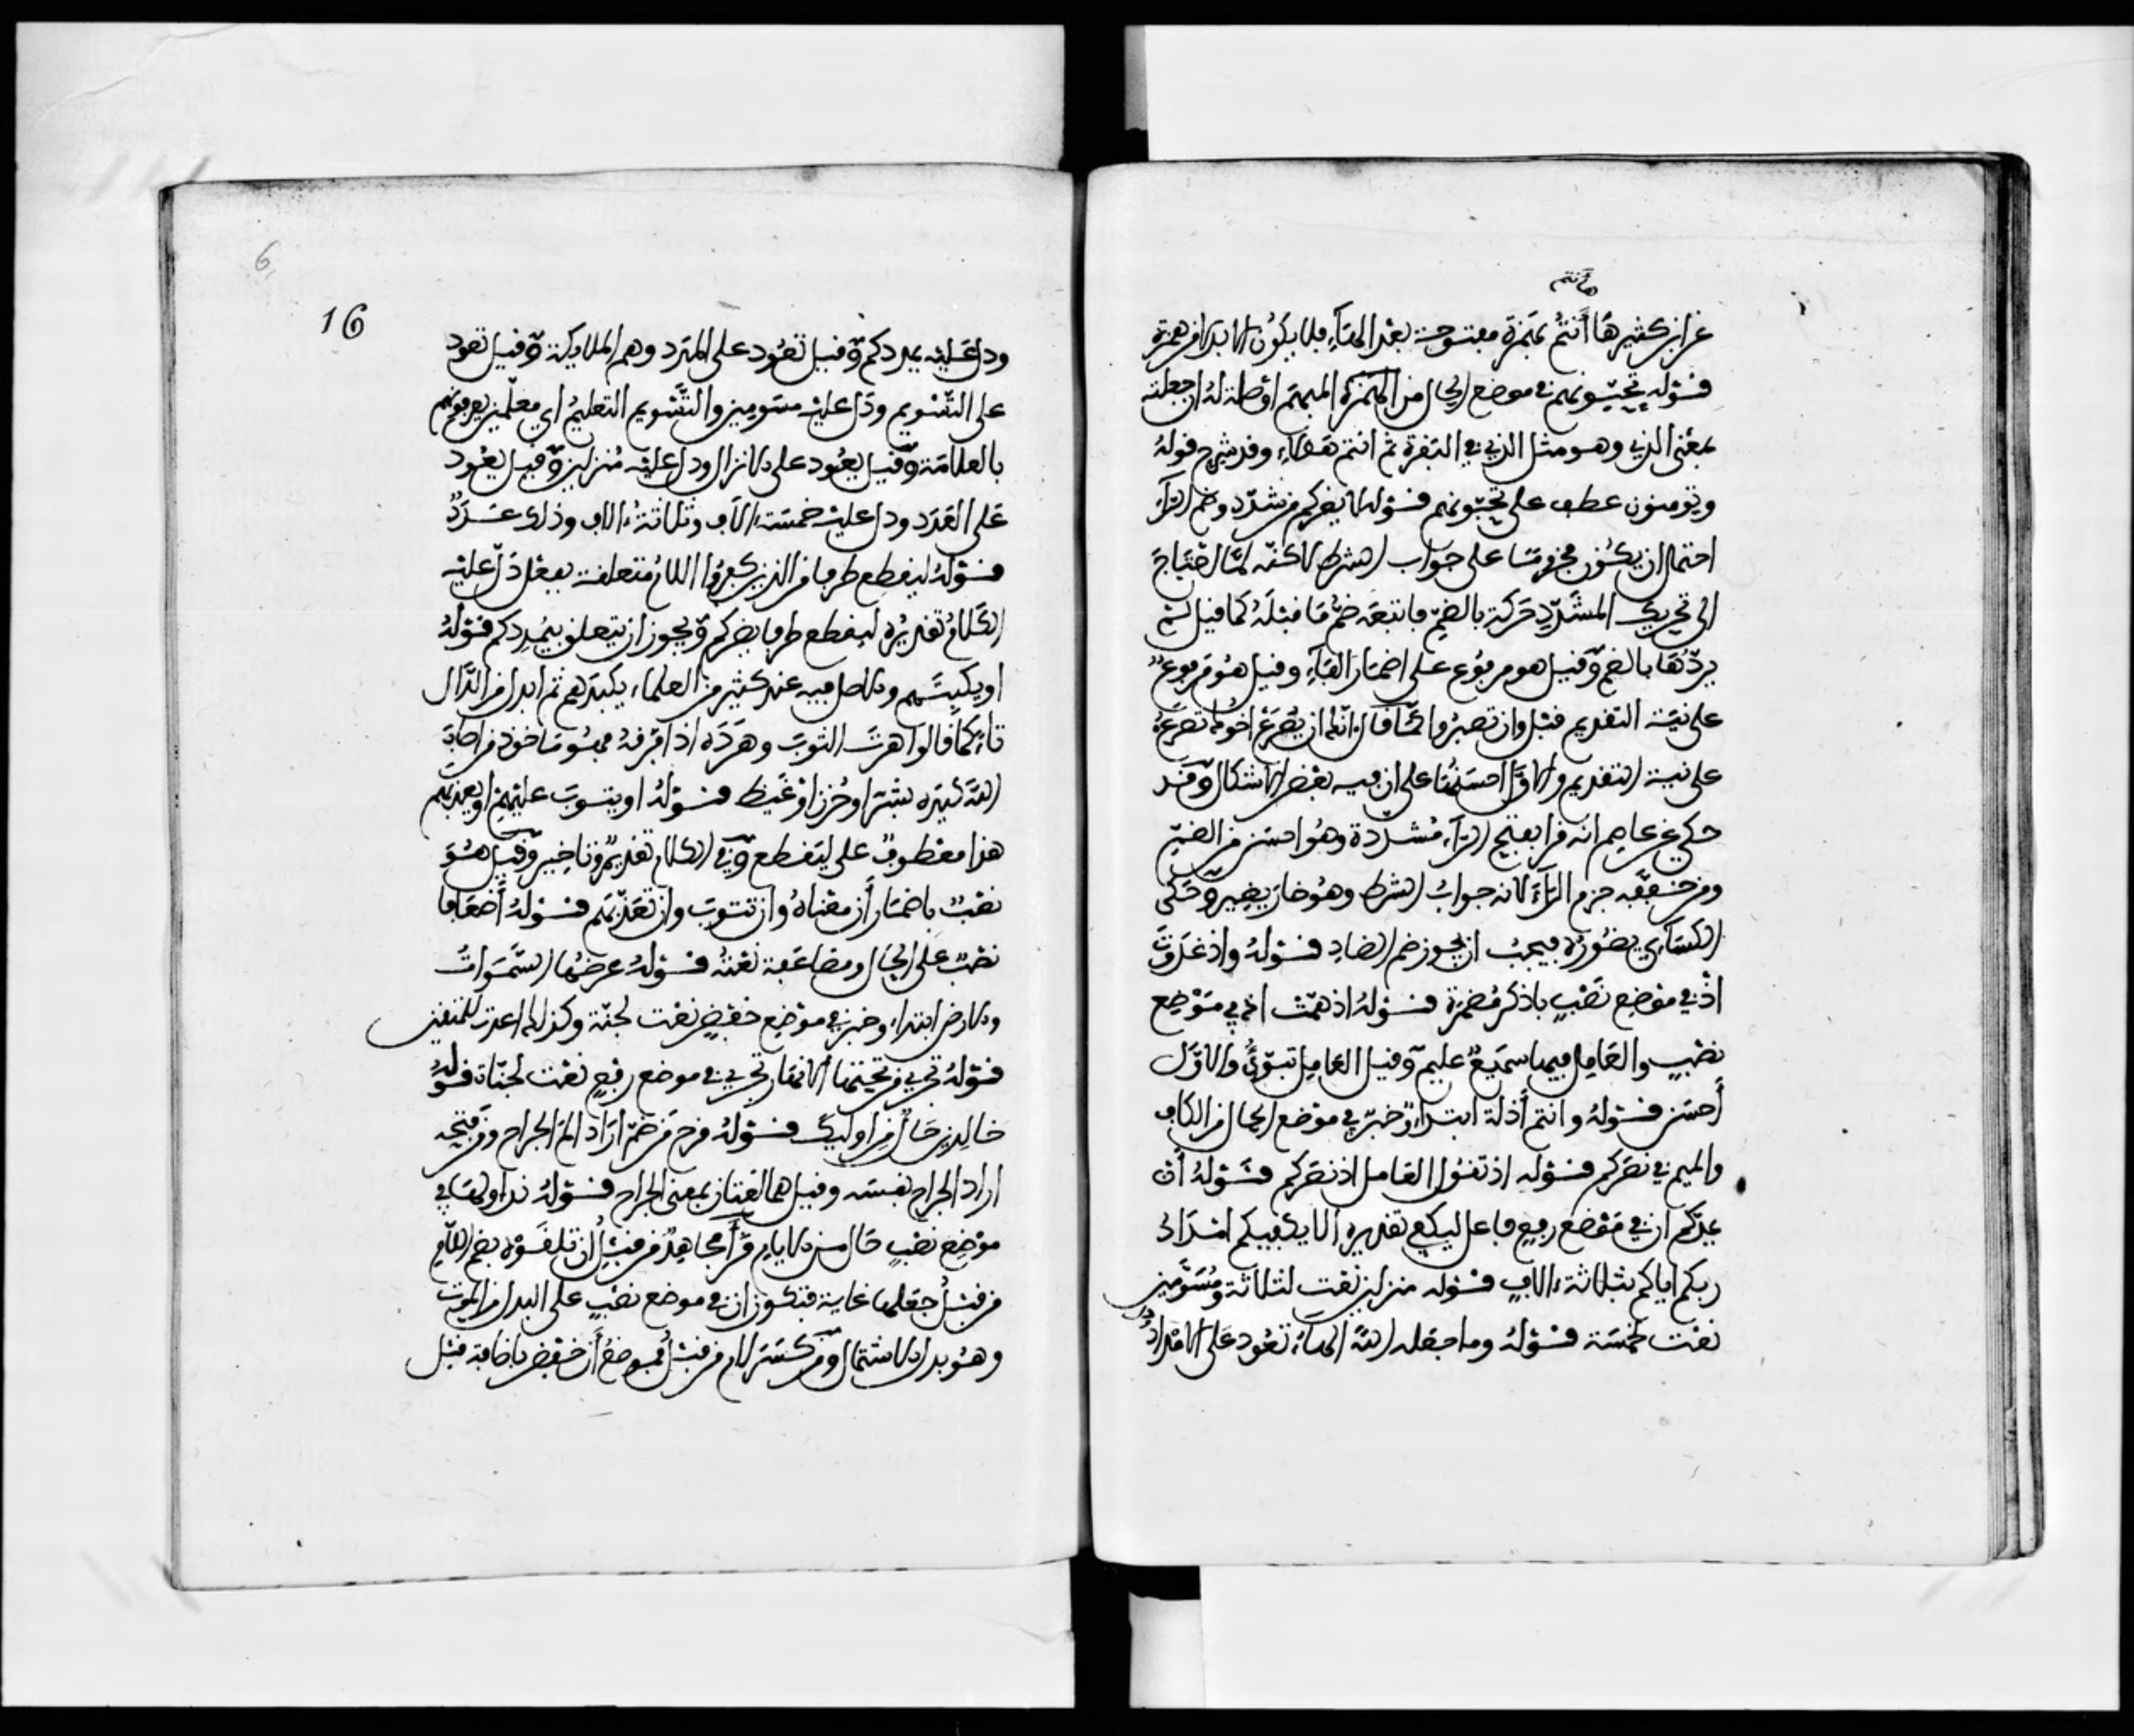 هانتم
عن ابن كثير ها أنتم بهمزة مفتوحة بعد الهاء فلا يكون الا بدلا من همزة
قوله تحبونهم في موضع الحال من المبهم او صلة له ان جعلته
بمعنى الذي وهو مثل الذي في البقرة ثم انتم هؤلاء وقد شرح قوله
وتؤمنون عطف على تحبونهم قوله لا يضركم من شدد وضم الراء
احتمل ان يكون مجزوما على جواب الشرط لاكنه لما احتاج
الى تحريك المشدد حركه بالضم فاتبعه ضم ما قبله كما قيل لم
يردها بالضم وقيل هو مرفوع على اضمار الفاء وقيل هو مرفوع
على نية التقديم قبل وان تصبروا كما قال انك ان يصرع اخوك تصرع
على نية التقديم والاول احسنها على ان فيه بعض الاشكال وقد
حكي عن عاصم انه قرا بفتح الراء مشددة وهو احسن من الضم
ومن خففه جزم الراء لانه جواب الشرط وهو من ضار يضير وحكى
الكسائي يضوره فيجب ان يجوز ضم الضاد قوله واذ غدوت
اذ في موضع نصب باذكر مضمرة قوله اذ همت اذ في موضع
نصب والعامل فيها سميع عليم وقيل العامل تبوئ والاول
أحسن قوله وانتم أذلة ابتداء وخبر في موضع الحال من الكاف
والميم في نصركم قوله اذ تقول العامل اذ نصركم قوله أن
يمدكم ان في موضع رفع فاعل ليكفي تقديره الا يكفيكم امداد
ربكم اياكم بثلاثة ءالاف قوله منزلين نعت لثلاثة ومسومين
نعت لخمسة قوله وما جعله الله الهاء تعود على الامداد
16
ودل عليه يمددكم وقيل تعود على المدد وهم الملايكة وقيل تعود
على التسويم ودل عليه مسومين والتسويم التعليم اي معلمين يعرفونهم
بالعلامة وقيل يعود على الانزال ودل عليه منزلين وقيل يعود
على العدد ودل عليه خمسة ءالاف وثلاثة ءالاف وذلك عدد
قوله ليقطع طرفا من الذين كفروا اللام متعلقة بفعل دل عليه
الكلام تقديره ليقطع طرفا نصركم ويجوز ان يتعلق بيمددكم قوله
او يكبتهم والاصل فيه عند كثير من العلماء يكبدهم ثم ابدل من الدال
تاء كما قالوا هرت الثوب وهرده اذا خرقه فهو ماخوذ من اصاب
الله كبده بشر او حزن او غيظ قوله او يتوب عليهم او يعذبهم
هذا معطوف على ليقطع وفي الكلام تقديم وتاخير وقيل هو
نصب باضمار أن معناه وان يتوب وان يعذبهم قوله أضعافا
نصب على الحال ومضاعفة نعته قوله عرضها السموات
والارض ابتداء وخبر في موضع خفض نعت لجنة وكذلك اعدت للمتقين
قوله تجري من تحتها الانهار تجري في موضع رفع نعت لجنات قوله
خالدين حال من اوليك قوله قرح من ضم اراد الم الجراح ومن فتحه
اراد الجراح بنفسه وقيل هما لغتان بمعنى الجراح قوله نداولها في
موضع نصب حال من الايام قرأ مجاهد من قبل أن تلقوه بضم اللام
من قبل جعلها غاية فتكون ان في موضع نصب على البدل من الموت
وهو بدل الاشتمال ومن كسر لام من قبل فموضع أن خفض باضافة قبل